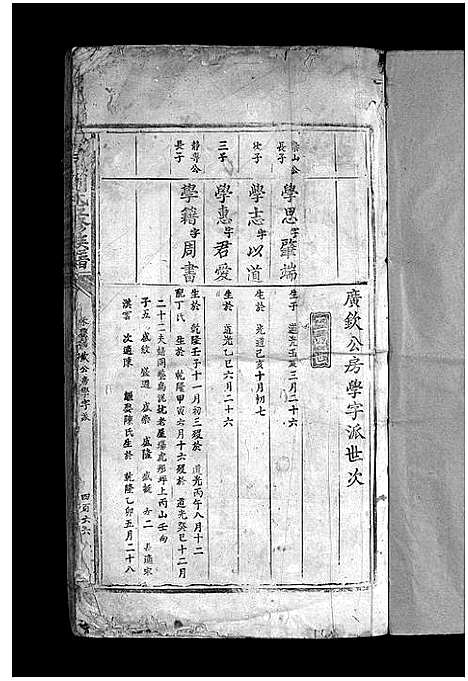 廣欽公房學字派世次
山公長子
學思字肇端
生於 道光壬寅三月二十六
次子
學志字以道
生於 道光己亥十月初七
三子
學惠字君愛
生於 道光乙巳六月二十六
靜專公長子
學籍字周書
生於 乾隆壬子十一月初三歿於 道光丙午八月十二
配丁氏 生於 乾隆甲寅六月十六歿於 道光癸巳十二月
二十二夫婦同塋烏泥坑老屋場虎形坪上丙山壬向
子五 盛紋 盛迎 盛崇 盛隆 盛 女二 長適宋
漢雲 次適陳 繼娶陳氏生於 乾隆乙卯五月二十八
公房學字派
四百六六